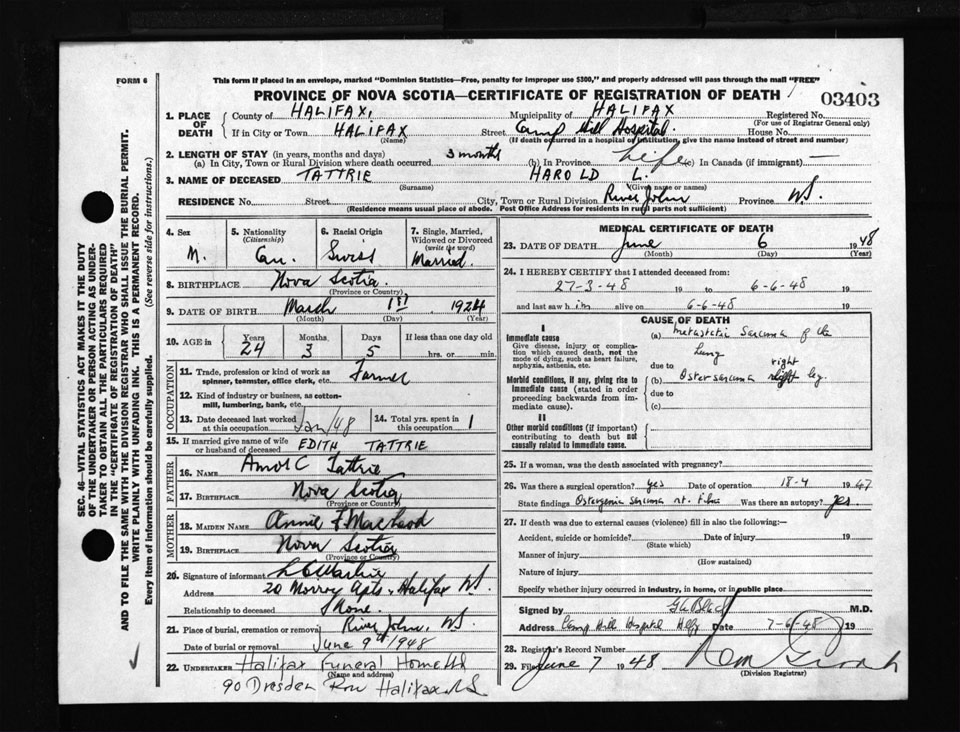 FORM 6
This form if placed in an envelope, marked "Dominion Statistics—Free, penalty for improper use $300," and properly addressed will pass through the mail "FREE"
PROVINCE OF NOVA SCOTIA—CERTIFICATE OF REGISTRATION OF DEATH
03403
1. PLACE OF DEATH
County of HALIFAX, Municipality of HALIFAX Registered No.
(For use of Registrar General only)
If in City or Town HALIFAX Street Camp Hill Hospital. House No.
(Name) (If death occurred in a hospital or institution, give the name instead of street and number)
2. LENGTH OF STAY (in years, months and days)
(a) In City, Town or Rural Division where death occurred 3 months (b) In Province Life (c) In Canada (if immigrant) —
3. NAME OF DECEASED TATTRIE HAROLD L.
(Surname) (Given name or names)
RESIDENCE No. Street City, Town or Rural Division River John Province N.S.
(Residence means usual place of abode. Post Office Address for residents in rural parts not sufficient)
4. Sex M.
5. Nationality (Citizenship) Can.
6. Racial Origin Swiss
7. Single, Married, Widowed or Divorced (write the word) Married.
8. BIRTHPLACE Nova Scotia.
(Province or Country)
9. DATE OF BIRTH March 1st 1924
(Month) (Day) (Year)
10. AGE in Years Months Days If less than one day old
24 3 5 hrs. or min.
OCCUPATION
11. Trade, profession or kind of work as spinner, teamster, office clerk, etc. Farmer
12. Kind of industry or business, as cotton-mill, lumbering, bank, etc.
13. Date deceased last worked at this occupation Jan/48
14. Total yrs. spent in this occupation 1
15. If married give name of wife or husband of deceased EDITH TATTRIE
FATHER
16. NAME Tattrie
17. BIRTHPLACE Nova Scotia
(Province or Country)
MOTHER
18. MAIDEN NAME Annie F MacLeod
19. BIRTHPLACE Nova Scotia
(Province or Country)
20. Signature of informant
Address 20 Apts, Halifax N.S.
Relationship to deceased None.
21. Place of burial, cremation or removal River John, N.S.
Date of burial or removal June 9th 1948
22. UNDERTAKER Halifax Funeral Home Ltd
(Name and address)
90 Dresden Row Halifax N S
MEDICAL CERTIFICATE OF DEATH
23. DATE OF DEATH June 6 1948
(Month) (Day) (Year)
24. I HEREBY CERTIFY that I attended deceased from:
27-3-48 19 to 6-6-48 19
and last saw h im alive on 6-6-48 19
CAUSE OF DEATH
I
Immediate cause
Give disease, injury or complication which caused death, not the mode of dying, such as heart failure, asphyxia, asthenia, etc.
(a) Metastatic Sarcoma of the Lung
due to
Morbid conditions, if any, giving rise to immediate cause (stated in order proceeding backwards from immediate cause).
(b) Osteosarcoma right leg.
due to
(c)
II
Other morbid conditions (if important) contributing to death but not causally related to immediate cause.
25. If a woman, was the death associated with pregnancy?
26. Was there a surgical operation? yes Date of operation 18-4 1947
State findings Osteogenic sarcoma rt. tibia Was there an autopsy? yes.
27. If death was due to external causes (violence) fill in also the following:—
Accident, suicide or homicide? Date of injury 19
(State which)
Manner of injury
(How sustained)
Nature of injury
Specify whether injury occurred in industry, in home, or in public place
Signed by M.D.
Address Camp Hill Hospital Hlfx Date 7-6-48 19
28. Registrar's Record Number
29. Filed June 7 1948
(Division Registrar)
SEC. 46—VITAL STATISTICS ACT MAKES IT THE DUTY
OF THE UNDERTAKER OR PERSON ACTING AS UNDER-
TAKER TO OBTAIN ALL THE PARTICULARS REQUIRED
IN THE "CERTIFICATE OF REGISTRATION OF DEATH"
AND TO FILE THE SAME WITH THE DIVISION REGISTRAR WHO SHALL ISSUE THE BURIAL PERMIT.
WRITE PLAINLY WITH UNFADING INK. THIS IS A PERMANENT RECORD.
Every item of information should be carefully supplied. (See reverse side for instructions.)